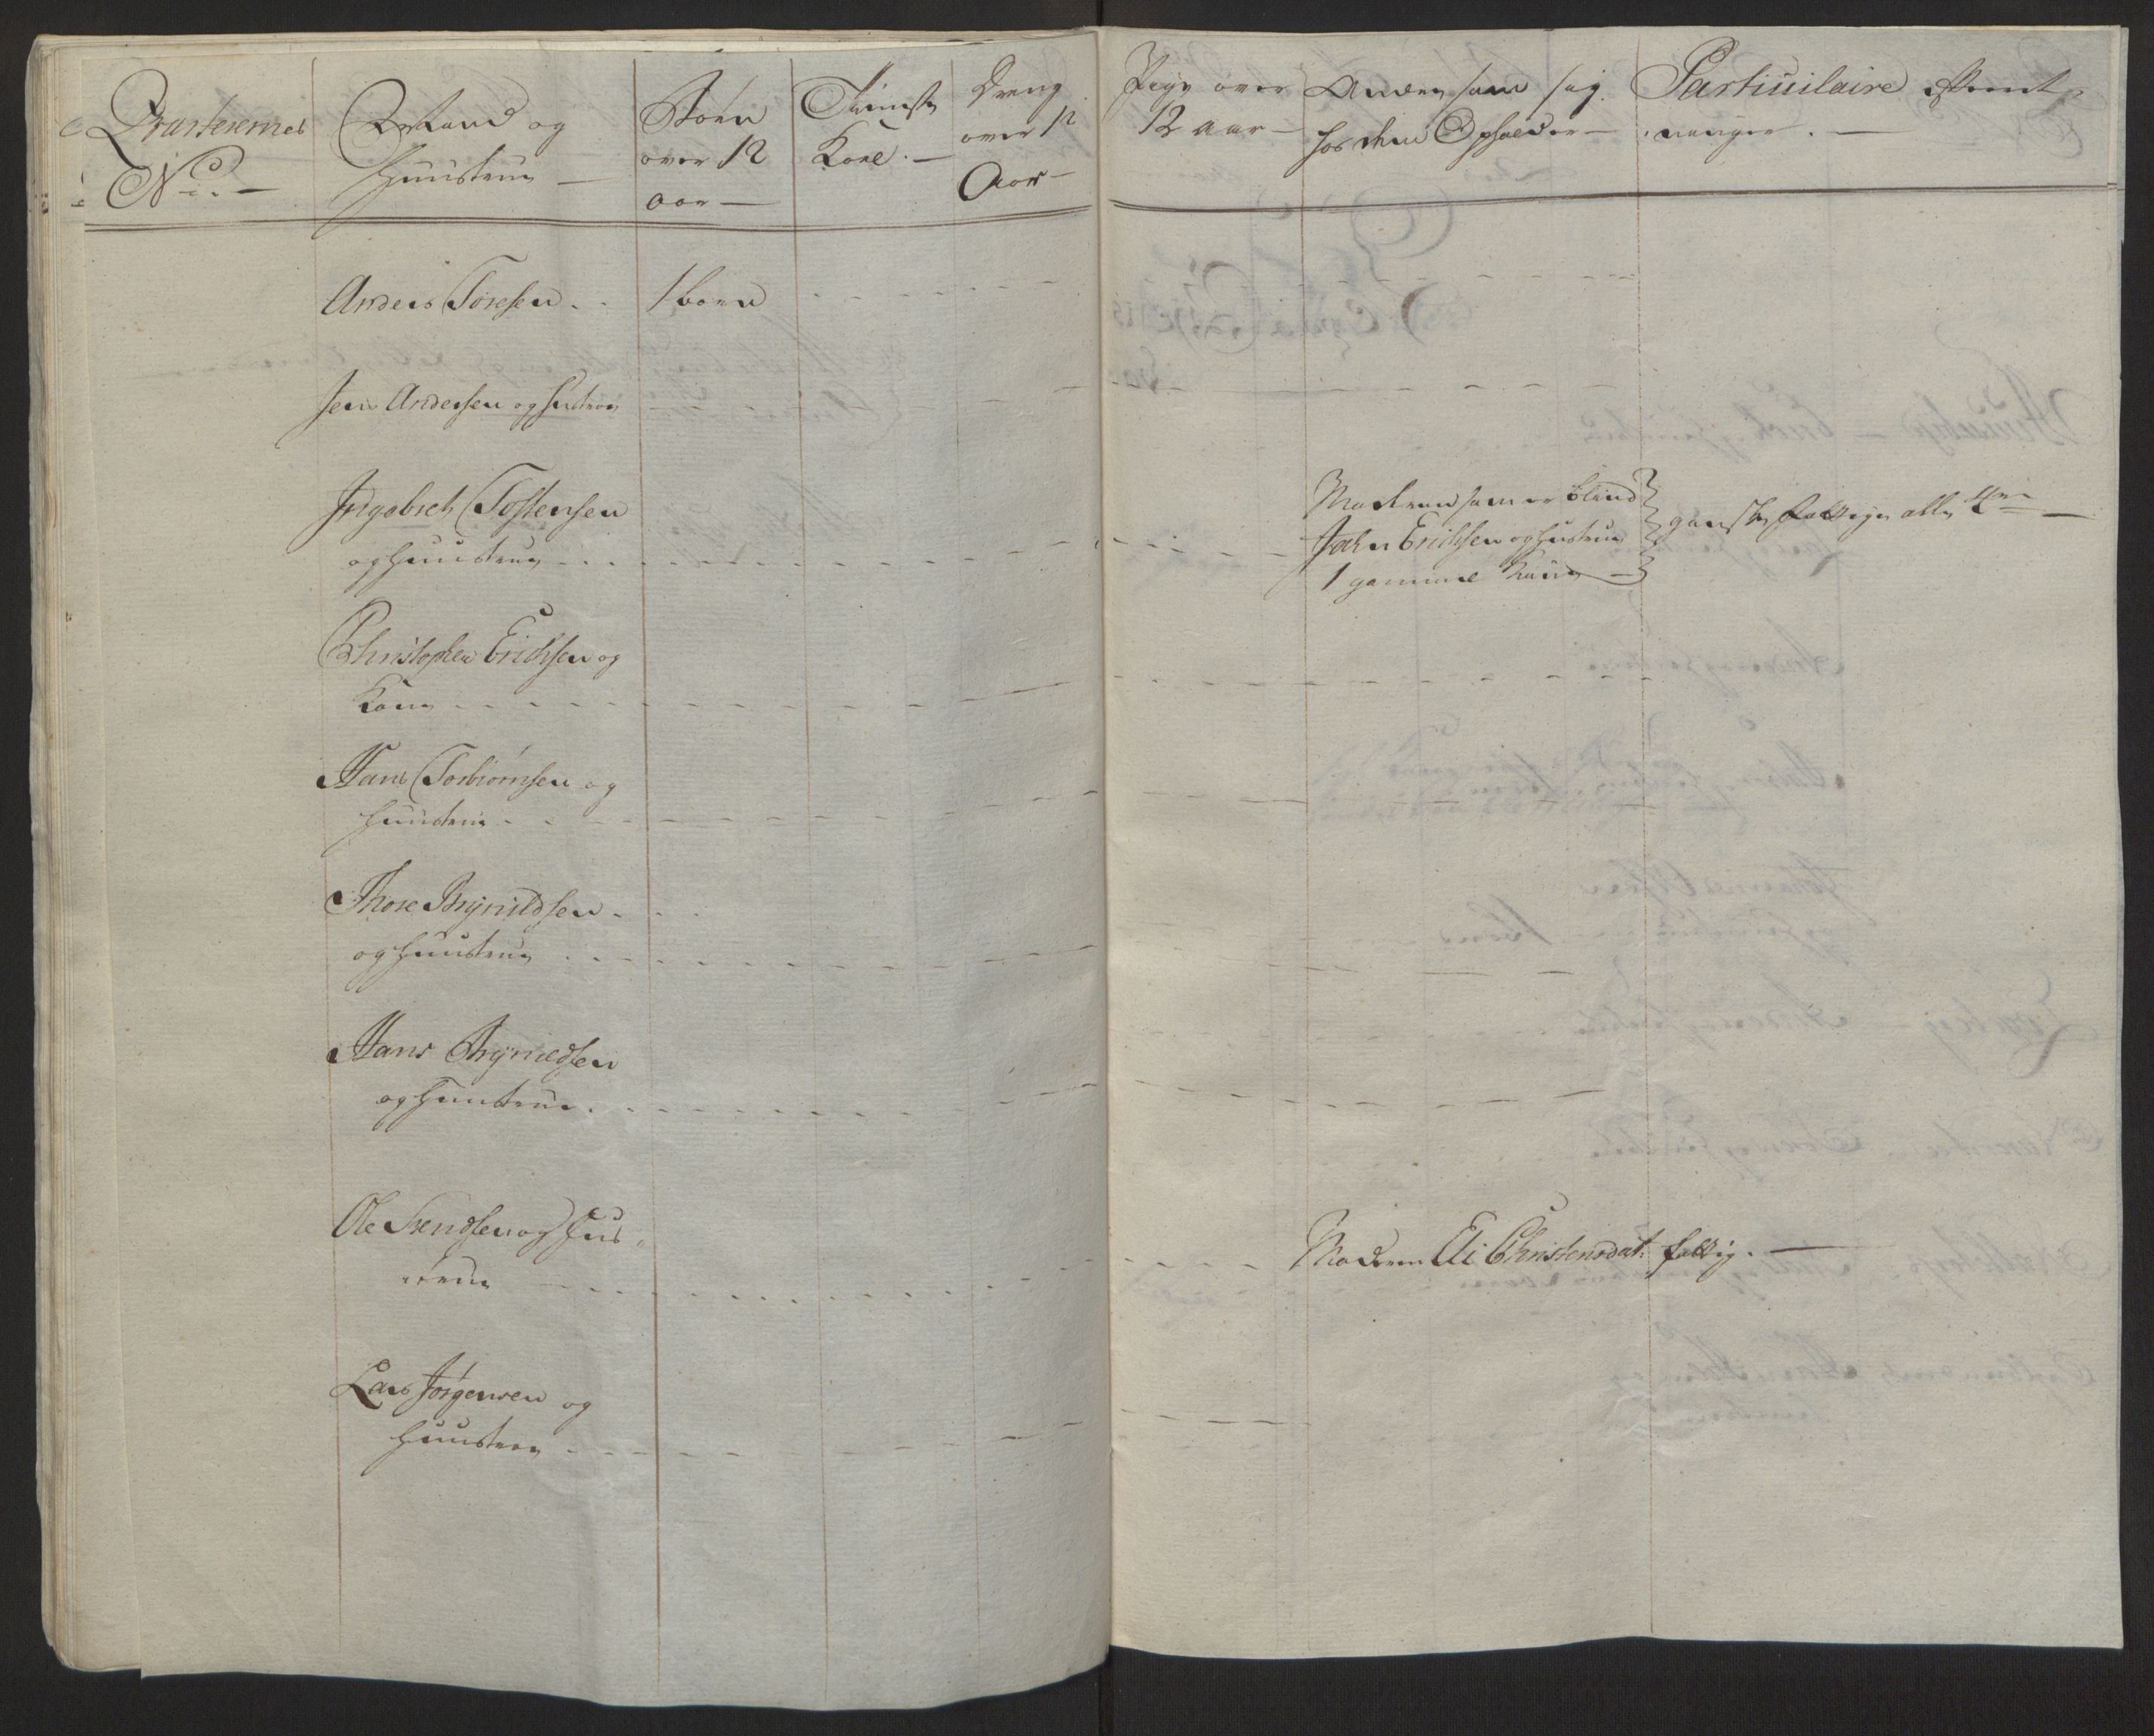 Qvarterernes
No.
Mand og
Huustrue
Børn
over 12
aar
Tieniste
Karl.
Dreng
over 12
Aar
Pige over
12 aar
Anden som sig
hos dem Opholder
Particulaire Anmærk
ninger.
Anders Toresen
1 barn
Jens Andersen og hustroe
Ingebret Tostensen
og Huustrue
Moderen som er blind
John Erichsen og hustrue
1 gammel Kone
ganske fattige alle
Christopher Erichsen og
Kone
Hans Torbiørnsen og
Huustrue
Thore Brynildsen
og Huustrue
Hans Brynildsen
og Huustrue
Ole Svendsen og Hus
true
Moderen Eli Christensdat. fattig.
Lars Jørgensen og
Huustroe